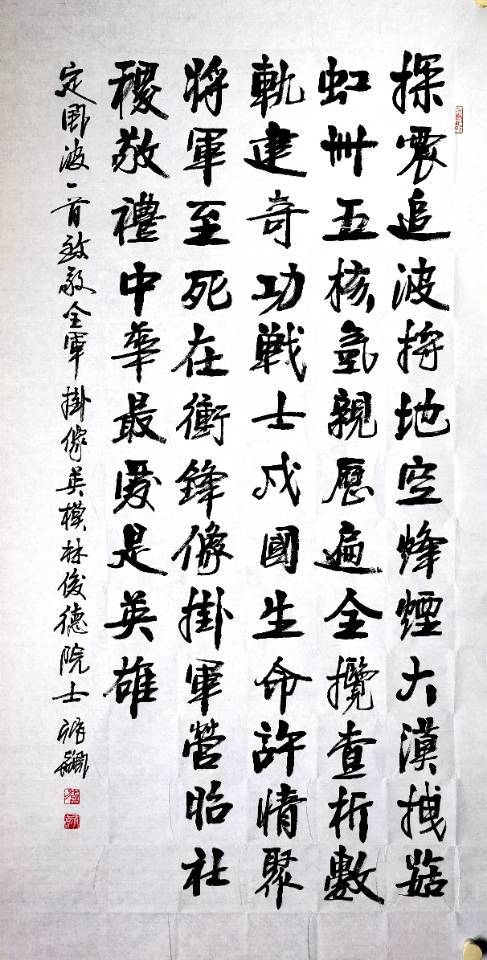 探震追波捋地空烽煙大漠拽菇
虹卅五核氫親歷遍全攬查析數
軌建奇功戰士戍國生命許情聚
將軍至死在衝鋒像掛軍營昭社
稷敬禮中華最愛是英雄
定風波一首致敬全軍掛像英模林俊德院士